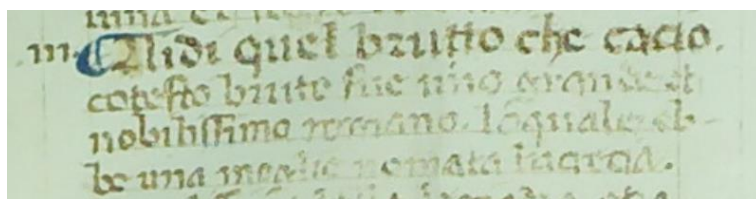 .m. Uidi quel brutto che cacio.
cotesto bruto fue uno grande et
nobilissimo romano. loquale eb-
be una moglie nomata lucretia.